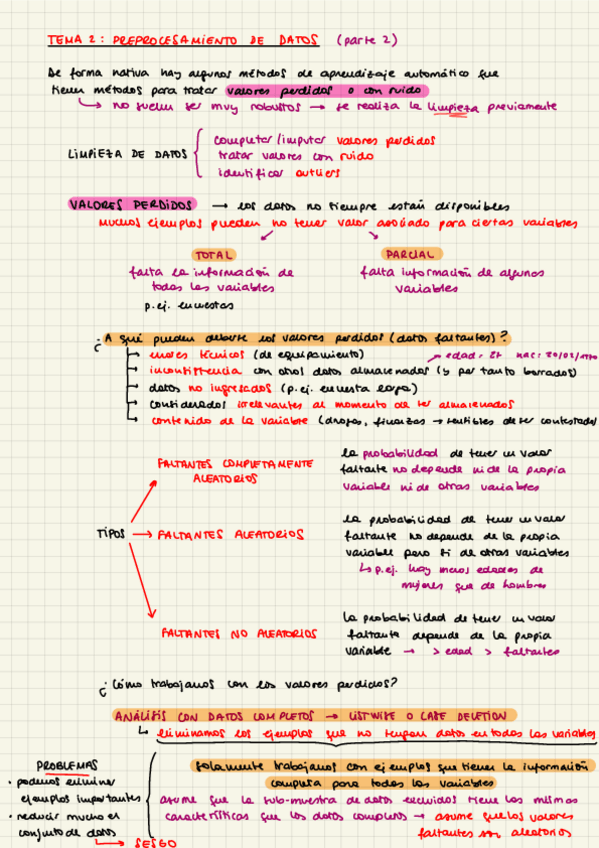 TEMA 2: PREPROCESAMIENTO DE DATOS (parte 2)
De forma nativa hay algunos métodos de aprendizaje automático que
tienen métodos para tratar valores perdidos o con ruido
↳ no suelen ser muy robustos → se realiza la limpieza previamente
LIMPIEZA DE DATOS
completar/imputar valores perdidos
tratar valores con ruido
identificar outliers
VALORES PERDIDOS → los datos no siempre están disponibles
muchos ejemplos pueden no tener valor asociado para ciertas variables
TOTAL
falta la información de
todas las variables
p.ej. encuestas
PARCIAL
falta información de algunas
variables
¿A qué pueden deberse los valores perdidos (datos faltantes)?
errores técnicos (de equipamiento)
inconsistencia con otros datos almacenados (y por tanto borrados)
edad: 27 nac: 20/02/1170
datos no ingresados (p.ej. encuesta larga)
considerados irrelevantes al momento de ser almacenados
contenido de la variable (drogas, finanzas → sensibles de ser contestadas
TIPOS
FALTANTES COMPLETAMENTE
ALEATORIOS
la probabilidad de tener un valor
faltante no depende ni de la propia
variable ni de otras variables
→ FALTANTES ALEATORIOS
la probabilidad de tener un valor
faltante no depende de la propia
variable pero si de otras variables
↳ p.ej. hay menos edades de
mujeres que de hombres
FALTANTES NO ALEATORIOS
la probabilidad de tener un valor
faltante depende de la propia
variable → > edad > faltantes
¿Cómo trabajamos con los valores perdidos?
ANÁLISIS CON DATOS COMPLETOS → LISTWISE O CASE DELETION
↳ eliminamos los ejemplos que no tengan datos en todas las variables
PROBLEMAS
• podemos eliminar
ejemplos importantes
• reducir mucho el
conjunto de datos
→ SESGO
solamente trabajamos con ejemplos que tienen la información
completa para todas las variables
asume que la sub-muestra de datos excluidos tiene las mismas
características que los datos completos → asume que los valores
faltantes son aleatorios